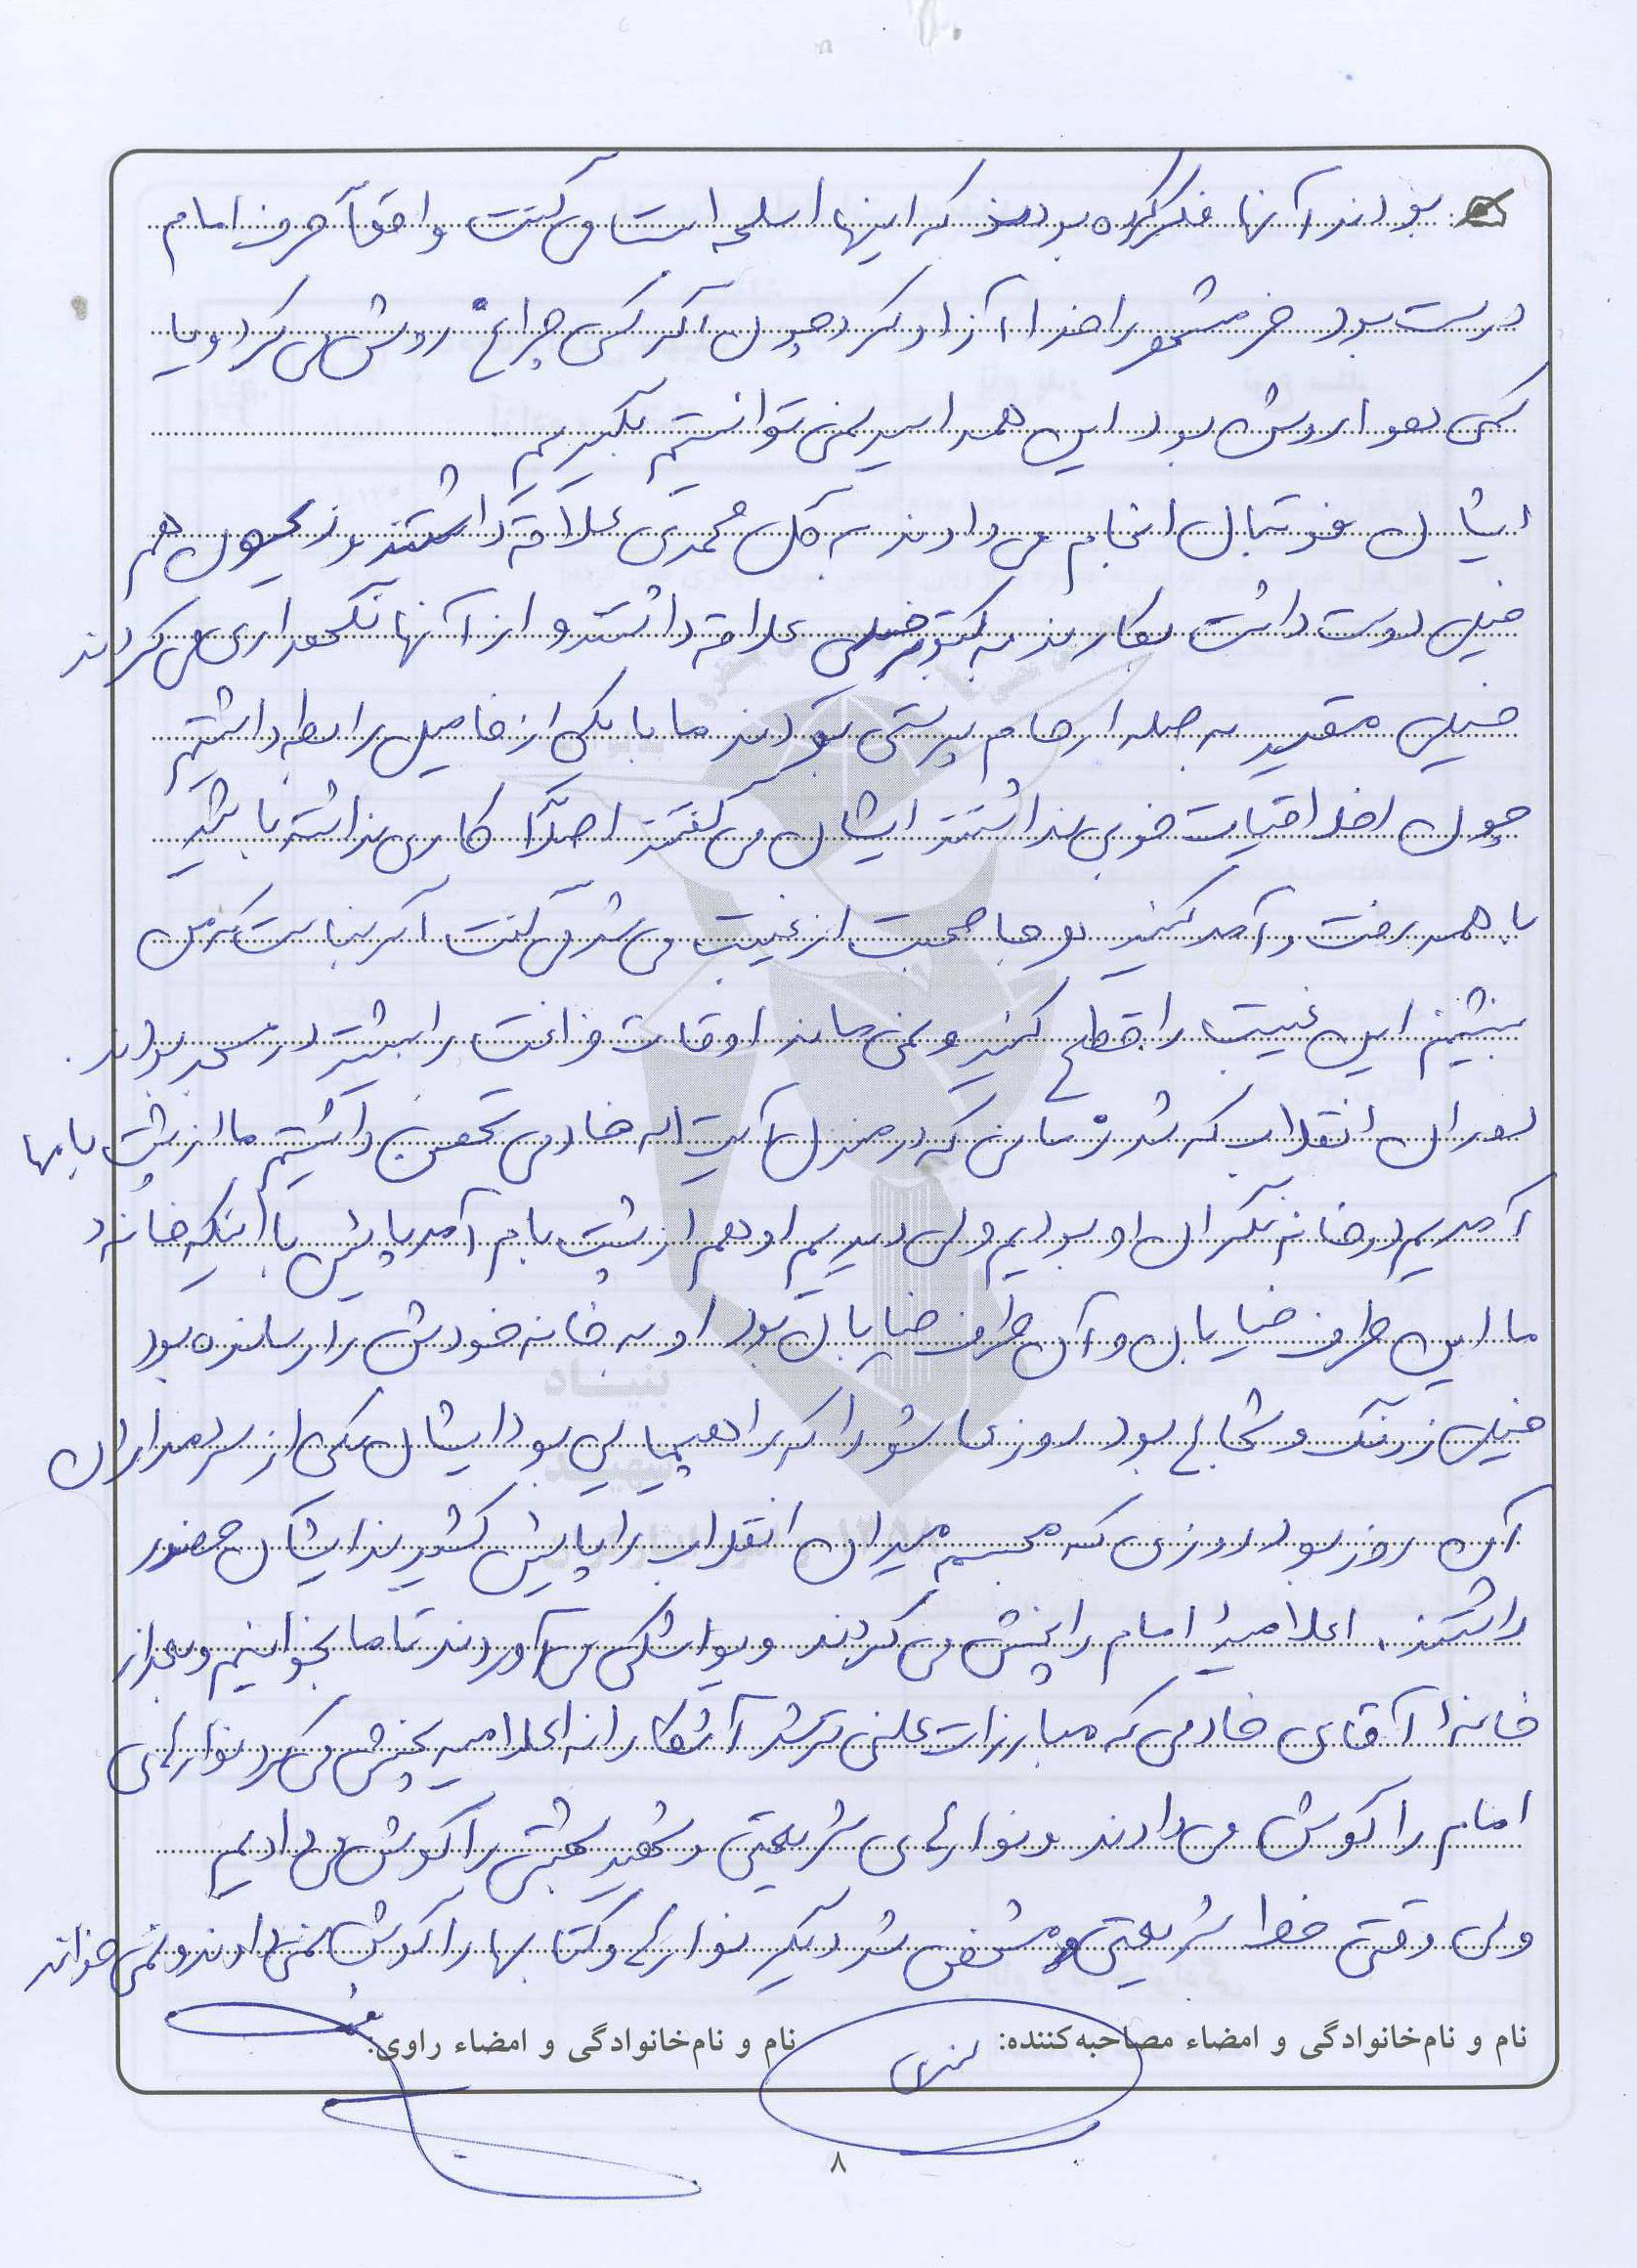 بودند آنها فکر کرده بودند که اینها اسلحه است می گفت واقعاً حرف امام
درست بود خرمشهر را خدا آزاد کرد چون اگر کسی چراغ روشن می کرد و یا
کمی هوا روشن بود این همه اسیر نمی توانستیم بگیریم
ایشان فوتبال انجام می دادند به گل محمدی علاقه داشتند و زیتون هم
خیلی دوست داشت بکارند به کبوتر خیلی علاقه داشتند و از آنها نگهداری می کردند
خیلی مقید به صله ارحام پرستی بودند ما با یکی از فامیل رابطه داشتیم
چون اخلاقیات خوبی نداشتند ایشان می گفتند اصلاً کاری نداشته باشید
با همه رفت و آمد کنید هر جا صحبت از غیبت می شد می گفت اگر بناست که من
بشینم این غیبت را قطع کنید و نمی ماند اوقات فراغت را بیشتر در مسجد بودند.
دوران انقلاب که شد زمانی که در منزل آیت اله خادمی تحصن داشتیم ما از پشت بامها
آمدیم در خانه نگران او بودیم ولی دیدیم او هم از پشت بام آمد پائین با اینکه خانه
ما این طرف خیابان و آن طرف خیابان بود او به خانه خودش را رسانده بود
خیلی زرنگ و شجاع بود روز عاشورا که راهپیمایی بود ایشان یکی از سردمداران
آن روز بود روزی که مجسمه میدان انقلاب را پایین کشیدند ایشان حضور
داشتند. اعلامیه امام را پخش می کردند و یواشکی می آوردند تا ما بخوانیم و بعد از
خانه آقای خادمی که مبارزات علنی تر شد آشکارانه اعلامیه پخش می کرد نوارهای
امام را گوش می دادند و نوارهای شریعتی و شهید بهشتی را گوش می دادیم
ولی وقتی خط شریعتی مشخص شد دیگر نوارها و کتابها را گوش نمی دادند و نمی خواندند
نام و نام‌خانوادگی و امضاء مصاحبه‌کننده:
نام و نام‌خانوادگی و امضاء راوی:
۸
بنیـاد
شهیـد